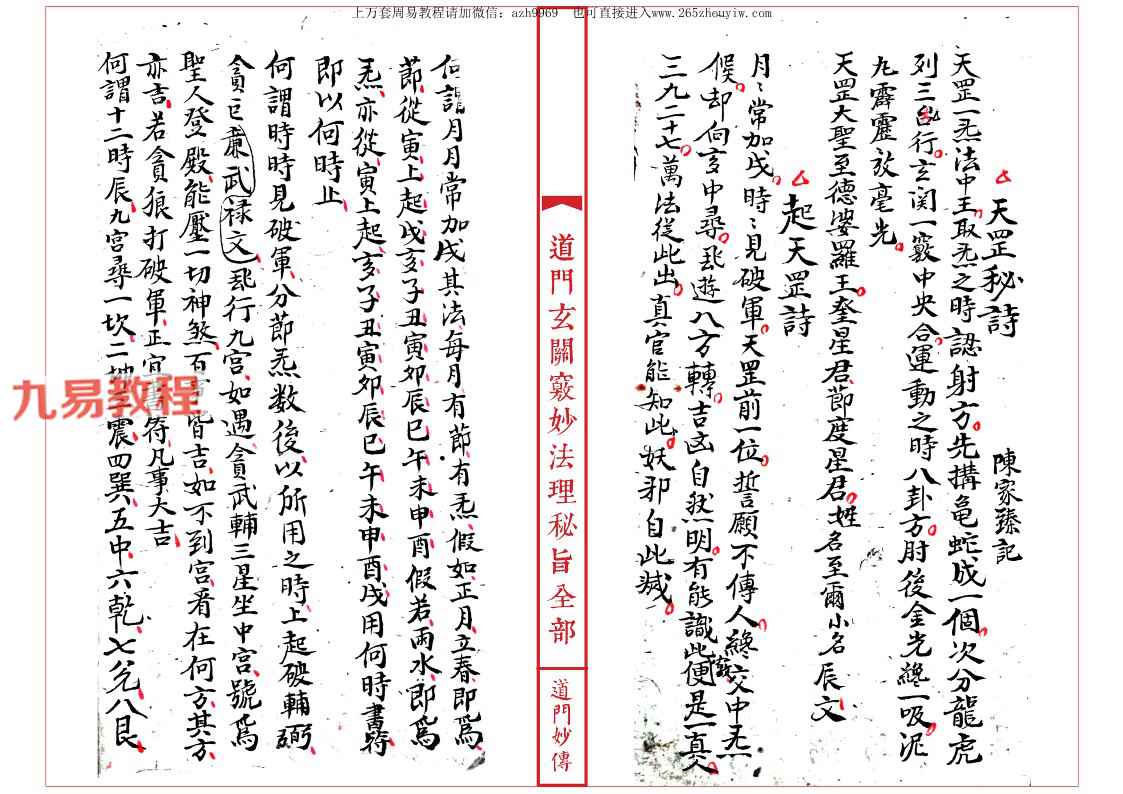 上万套周易教程请加微信：azh9969 也可直接进入www.265zhouyiw.com
天罡秘詩
陳家臻記
天罡一炁法中王取炁之時認射方先搆龟蛇成一個次分龍虎
列三台行玄関一竅中央合運動之時八卦方肘後金光縂一吸泥
丸霹靂放毫光
天罡大聖至德婆羅王奎星君節度星君姓名至爾小名辰文
起天罡詩
月〻常加戌時〻見破軍天罡前一位誓願不傳人縂交中炁
候却向亥中尋飛遊八方轉吉凶自然明有能識此便是一真人
三九二十七萬法從此出真官能知此妖邪自此滅
道門玄關竅妙法理秘旨全部
道門妙傳
何謂月月常加戌其法每月有節有炁假如正月立春即爲
節從寅上起戌亥子丑寅卯辰巳午未申酉假若雨水即爲
炁亦從寅上起亥子丑寅卯辰巳午未申酉戌用何時書符
即以何時止
何謂時時見破軍分節炁数後以所用之時上起破輔弼
貪巨廉武禄文飛行九宫如遇貪武輔三星坐中宫號爲
聖人登殿能壓一切神煞百事皆吉如不到宫看在何方其方
亦吉若貪狼打破軍正宜書符凡事大吉
何謂十二時辰九宫尋一坎二坤三震四巽五中六乾七兌八艮
九易教程